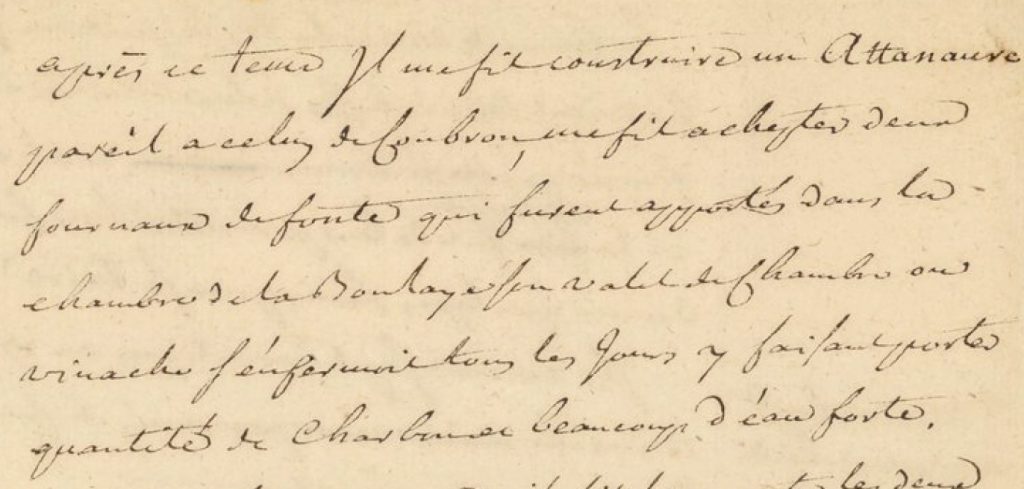 après ce tems Il me fit construire un Attanaure
pareil a celuy de Coubron, me fit achepter deux
fournaux de fonte qui furent apportés dans la
chambre de la Boulaye son valet de Chambre ou
vinache s'enfermoit tous les Jours y faisant porter
quantité de Charbon et beaucoup d'éau forte.
les deux